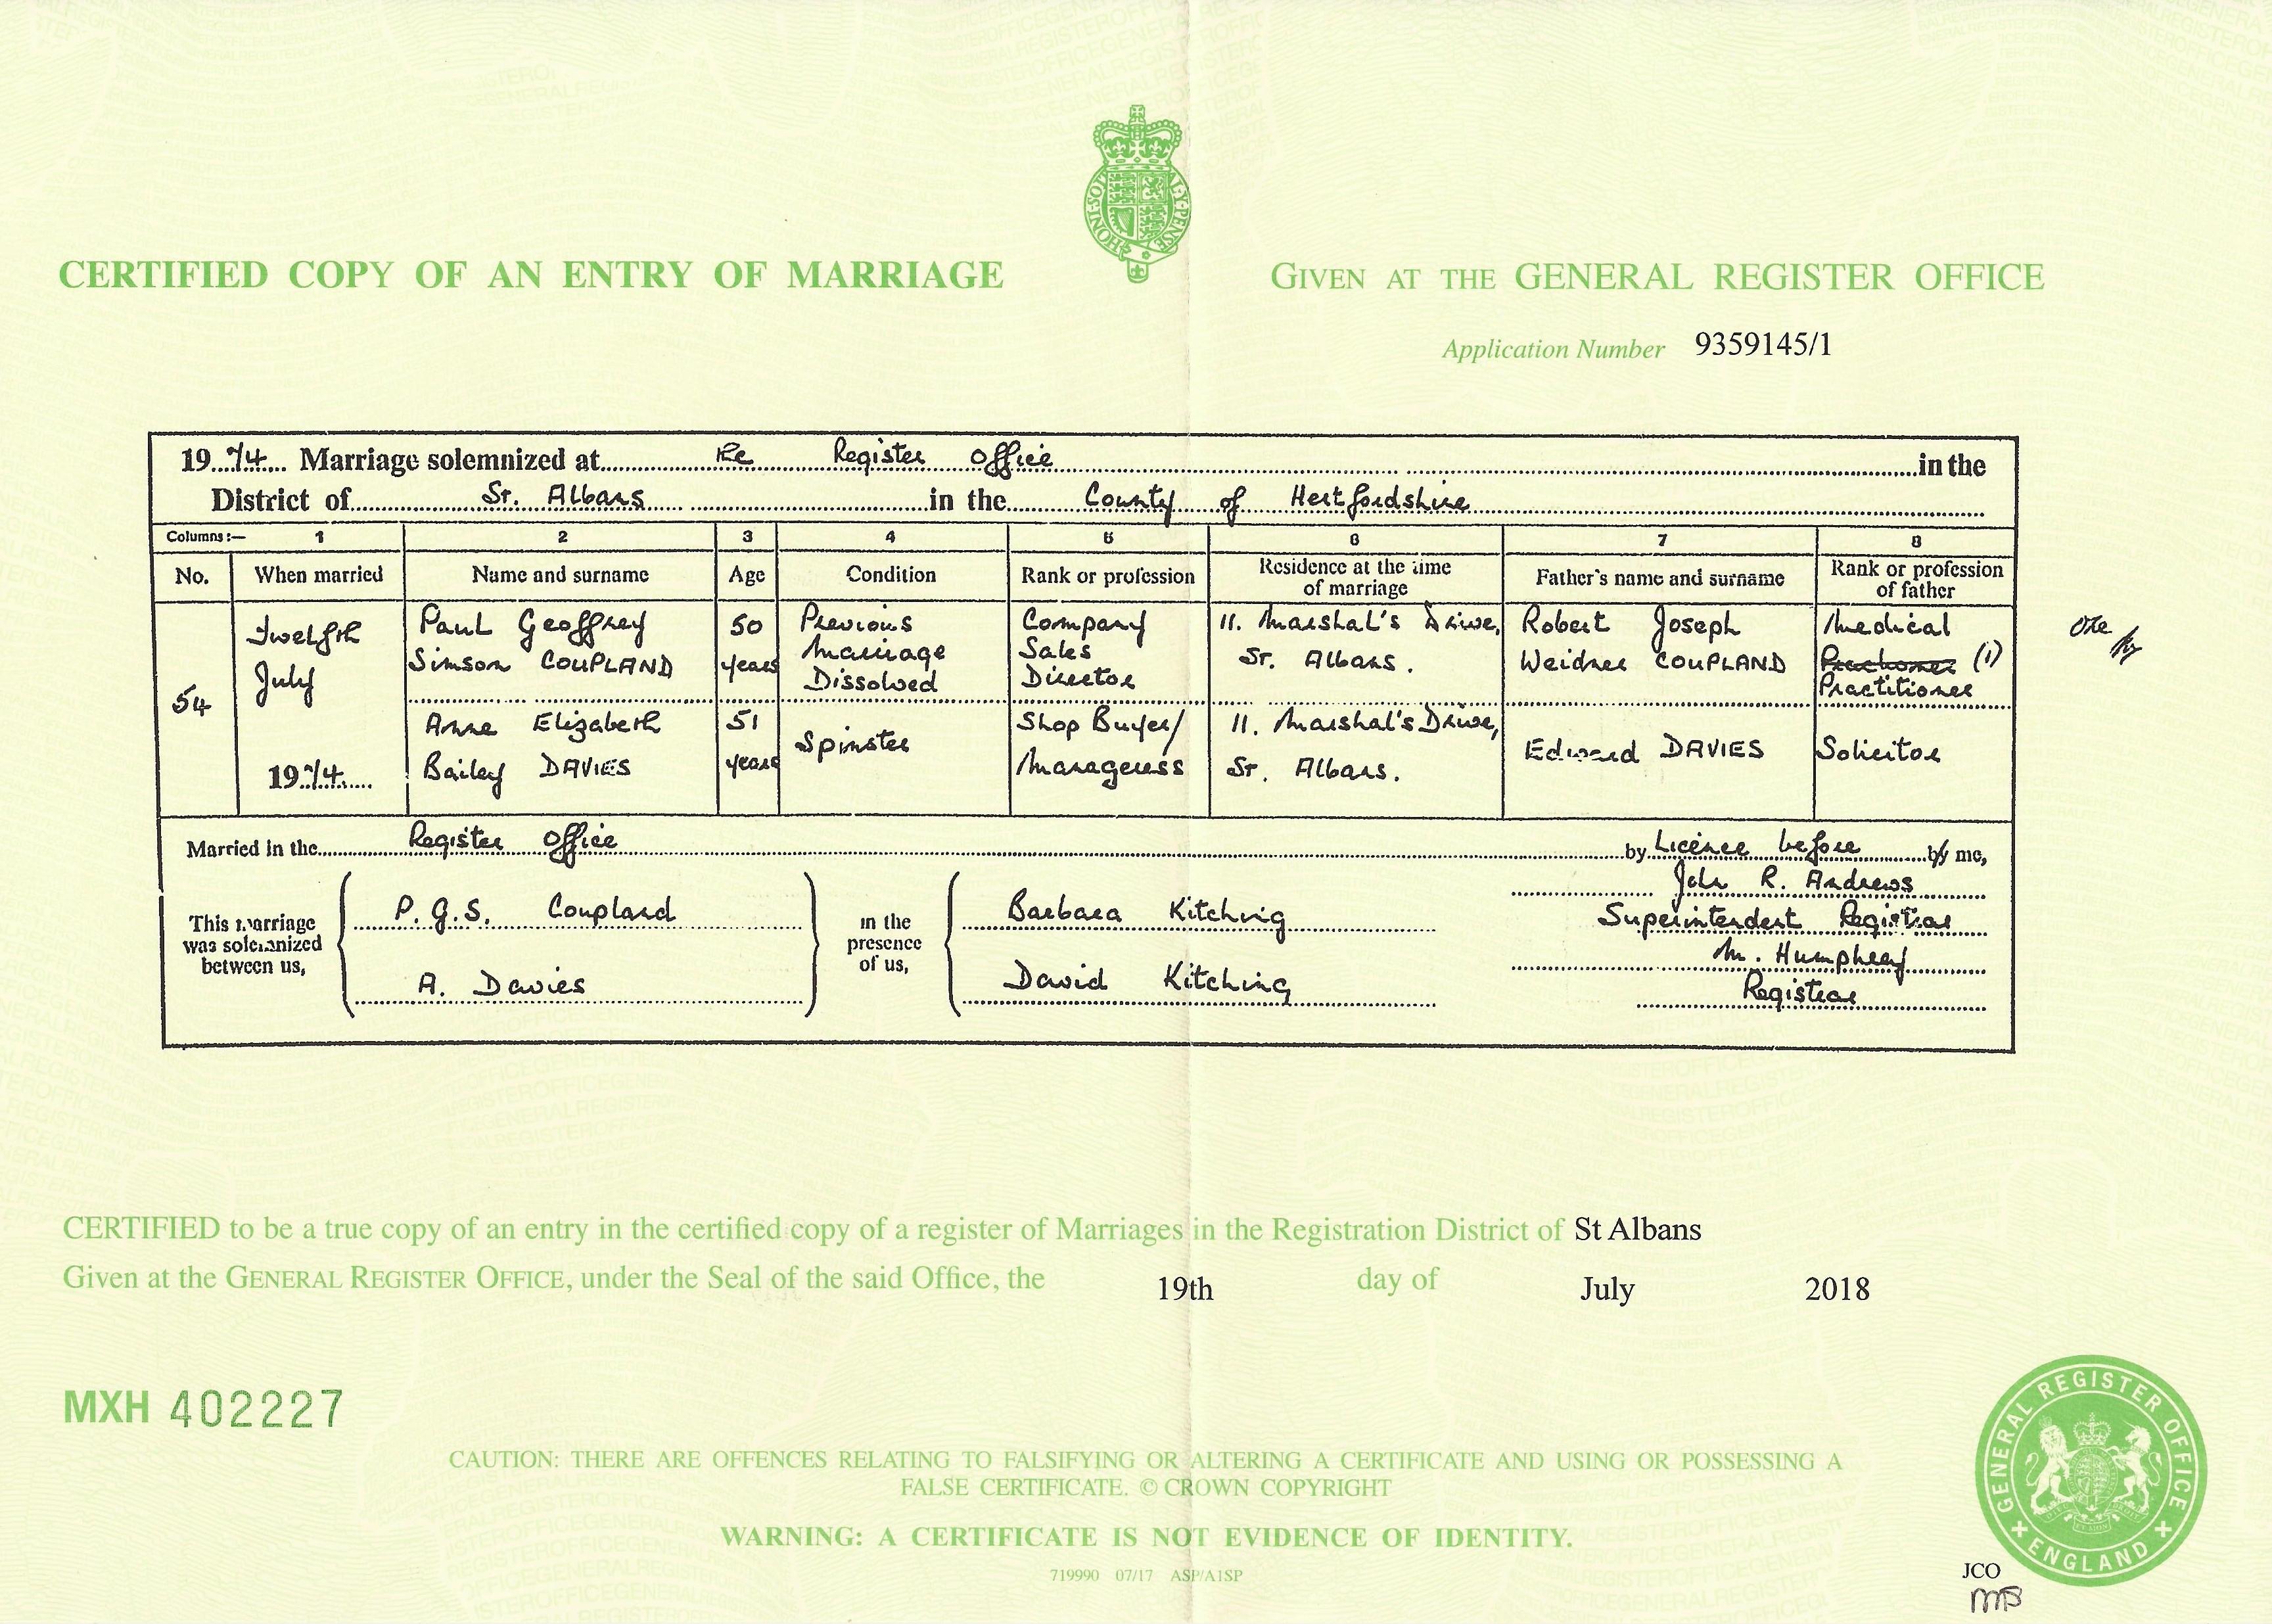 HONI·SOIT
MAL·Y·PENSE
CERTIFIED COPY OF AN ENTRY OF MARRIAGE
GIVEN AT THE GENERAL REGISTER OFFICE
Application Number 9359145/1
1974 Marriage solemnized at the Register Office in the
District of St. Albans in the County of Hertfordshire
Columns:— 1 2 3 4 5 6 7 8
No. When married Name and surname Age Condition Rank or profession Residence at the time of marriage Father's name and surname Rank or profession of father
54 Twelfth July 1974
Paul Geoffrey Simson COUPLAND 50 years Previous Marriage Dissolved Company Sales Director 11. Marshal's Drive, St. Albans. Robert Joseph Weidner COUPLAND Medical Practioner (1) Practitioner
One
Anne Elizabeth Bailey DAVIES 51 years Spinster Shop Buyer/ Manageress 11. Marshal's Drive, St. Albans. Edward DAVIES Solicitor
Married in the Register Office by Licence before by me,
This marriage was solemnized between us,
P.G.S. Coupland
A. Davies
in the presence of us,
Barbara Kitching
David Kitching
John R. Andrews
Superintendent Registrar
M. Humphrey
Registrar
CERTIFIED to be a true copy of an entry in the certified copy of a register of Marriages in the Registration District of St Albans
Given at the GENERAL REGISTER OFFICE, under the Seal of the said Office, the 19th day of July 2018
MXH 402227
CAUTION: THERE ARE OFFENCES RELATING TO FALSIFYING OR ALTERING A CERTIFICATE AND USING OR POSSESSING A
FALSE CERTIFICATE. © CROWN COPYRIGHT
WARNING: A CERTIFICATE IS NOT EVIDENCE OF IDENTITY.
719990 07/17 ASP/A1SP
GENERAL REGISTER OFFICE
ENGLAND
JCO
MB